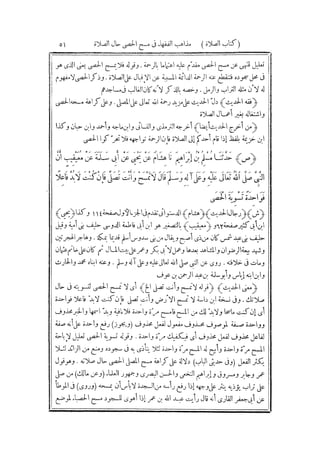 (كتاب الصلاة) مذاهب الفقهاء فى مسح الحصى حال الصلاة ٥١
تعليل للنهى عن مسح الحصى مقدّم عليه اهتماما بالرحمة. وقوله فلا يمسح الحصى يعنى الذى هو
فى محل سجوده فتنقطع عنه الرحمة الناشئة المسببة عن الإقبال على الصلاة. وذكر الحصى لا مفهوم
له لأن مثله التراب والرمل. وخصه بالذكر لأنه كان الغالب فى مساجدهم
﴿فقه الحديث﴾ دلّ الحديث على مزيد رحمة الله تعالى بالمصلى. وعلى كراهة مسحه الحصى
واشتغاله بغير أعمال الصلاة
﴿من أخرج الحديث أيضا﴾ أخرجه الترمذى والنسائى وابن ماجه وأحمد وابن حبان وكذا
ابن خزيمة بلفظ إذا قام أحدكم إلى الصلاة فإن الرحمة تواجهه فلا تحركوا الحصى
﴿ص﴾ حَدَّثَنَا مُسْلِمُ بْنُ إِبْرَاهِيمَ نَا هِشَامٌ عَنْ يَحْيَى عَنْ أَبِى سَلَمَةَ عَنْ مُعَيْقِيبٍ أَنَّ
النَّبِيَّ صَلَّى اللهُ تَعَالَى عَلَيْهِ وَعَلَى آلِهِ وَسَلَّمَ قَالَ لَا تَمْسَحْ وَأَنْتَ تُصَلِّى فَإِنْ كُنْتَ لَا بُدَّ فَاعِلًا
فَوَاحِدَةٌ تَسْوِيَةَ الْحَصَى
﴿ش﴾ ﴿رجال الحديث﴾ ﴿هشام﴾ الدستوائى تقدم فى الجزء الأول صفحة ١١٤ وكذا ﴿يحيى﴾
ابن أبى كثير صفحة ٦٢. و﴿معيقيب﴾ بالتصغير هو ابن أبى فاطمة الدوسى حليف بنى أمية وقيل
حليف بنى عبد شمس كان من ذى أصبح ويقال من بنى سدوس أسلم قديما بمكة. وهاجر الهجرتين
وشهد بيعة الرضوان والمشاهد بعدها وعمل لأبى بكر وعمر على بيت المال ثم كان على خاتم عثمان
ومات فى خلافته. روى عن النبى صلى الله تعالى عليه وعلى آله وسلم. وعنه ابناه محمد والحارث
وابن ابنه إياس وأبو سلمة بن عبد الرحمن بن عوف
﴿معنى الحديث﴾ ﴿قوله لا تمسح وأنت تصلى الخ﴾ أى لا تمسح الحصى لتسويته فى حال
صلاتك. وفى نسخة ابن داسة لا تمسح الأرض وأنت تصلى فإن كنت لابدّ فاعلا فواحدة
أى إن كنت ماسحا ولابدّ لك من المسح فامسح مرّة واحدة
وواحدة صفة لموصوف محذوف مفعول لفعل محذوف ﴿ويجوز﴾ رفع واحدة على أنه صفة
لفاعل محذوف لفعل محذوف أى فيكفيك مرّة واحدة. وقوله تسوية الحصى تعليل لإباحة
المسح مرّة واحدة وأبيح له المسح مرّة واحدة لئلا يتأذى به فى سجوده ومنع من الزائد لئلا
يكثر الفعل ﴿وفى حديثى الباب﴾ دلالة على كراهة مسح الحصى حال صلاته. وهو قول
عمر وجابر ومسروق وإبراهيم النخعى والحسن البصرى وجمهور العلماء ﴿وعن مالك﴾ من صلى
على تراب يؤذيه ينثر على وجهه إذا رفع رأسه من السجدة لا بأس أن يمسحه ﴿وروى﴾ فى الموطأ
عن أبى جعفر القارى أنه قال رأيت عبد الله بن عمر إذا أهوى للسجود مسح الحصباء لموضع